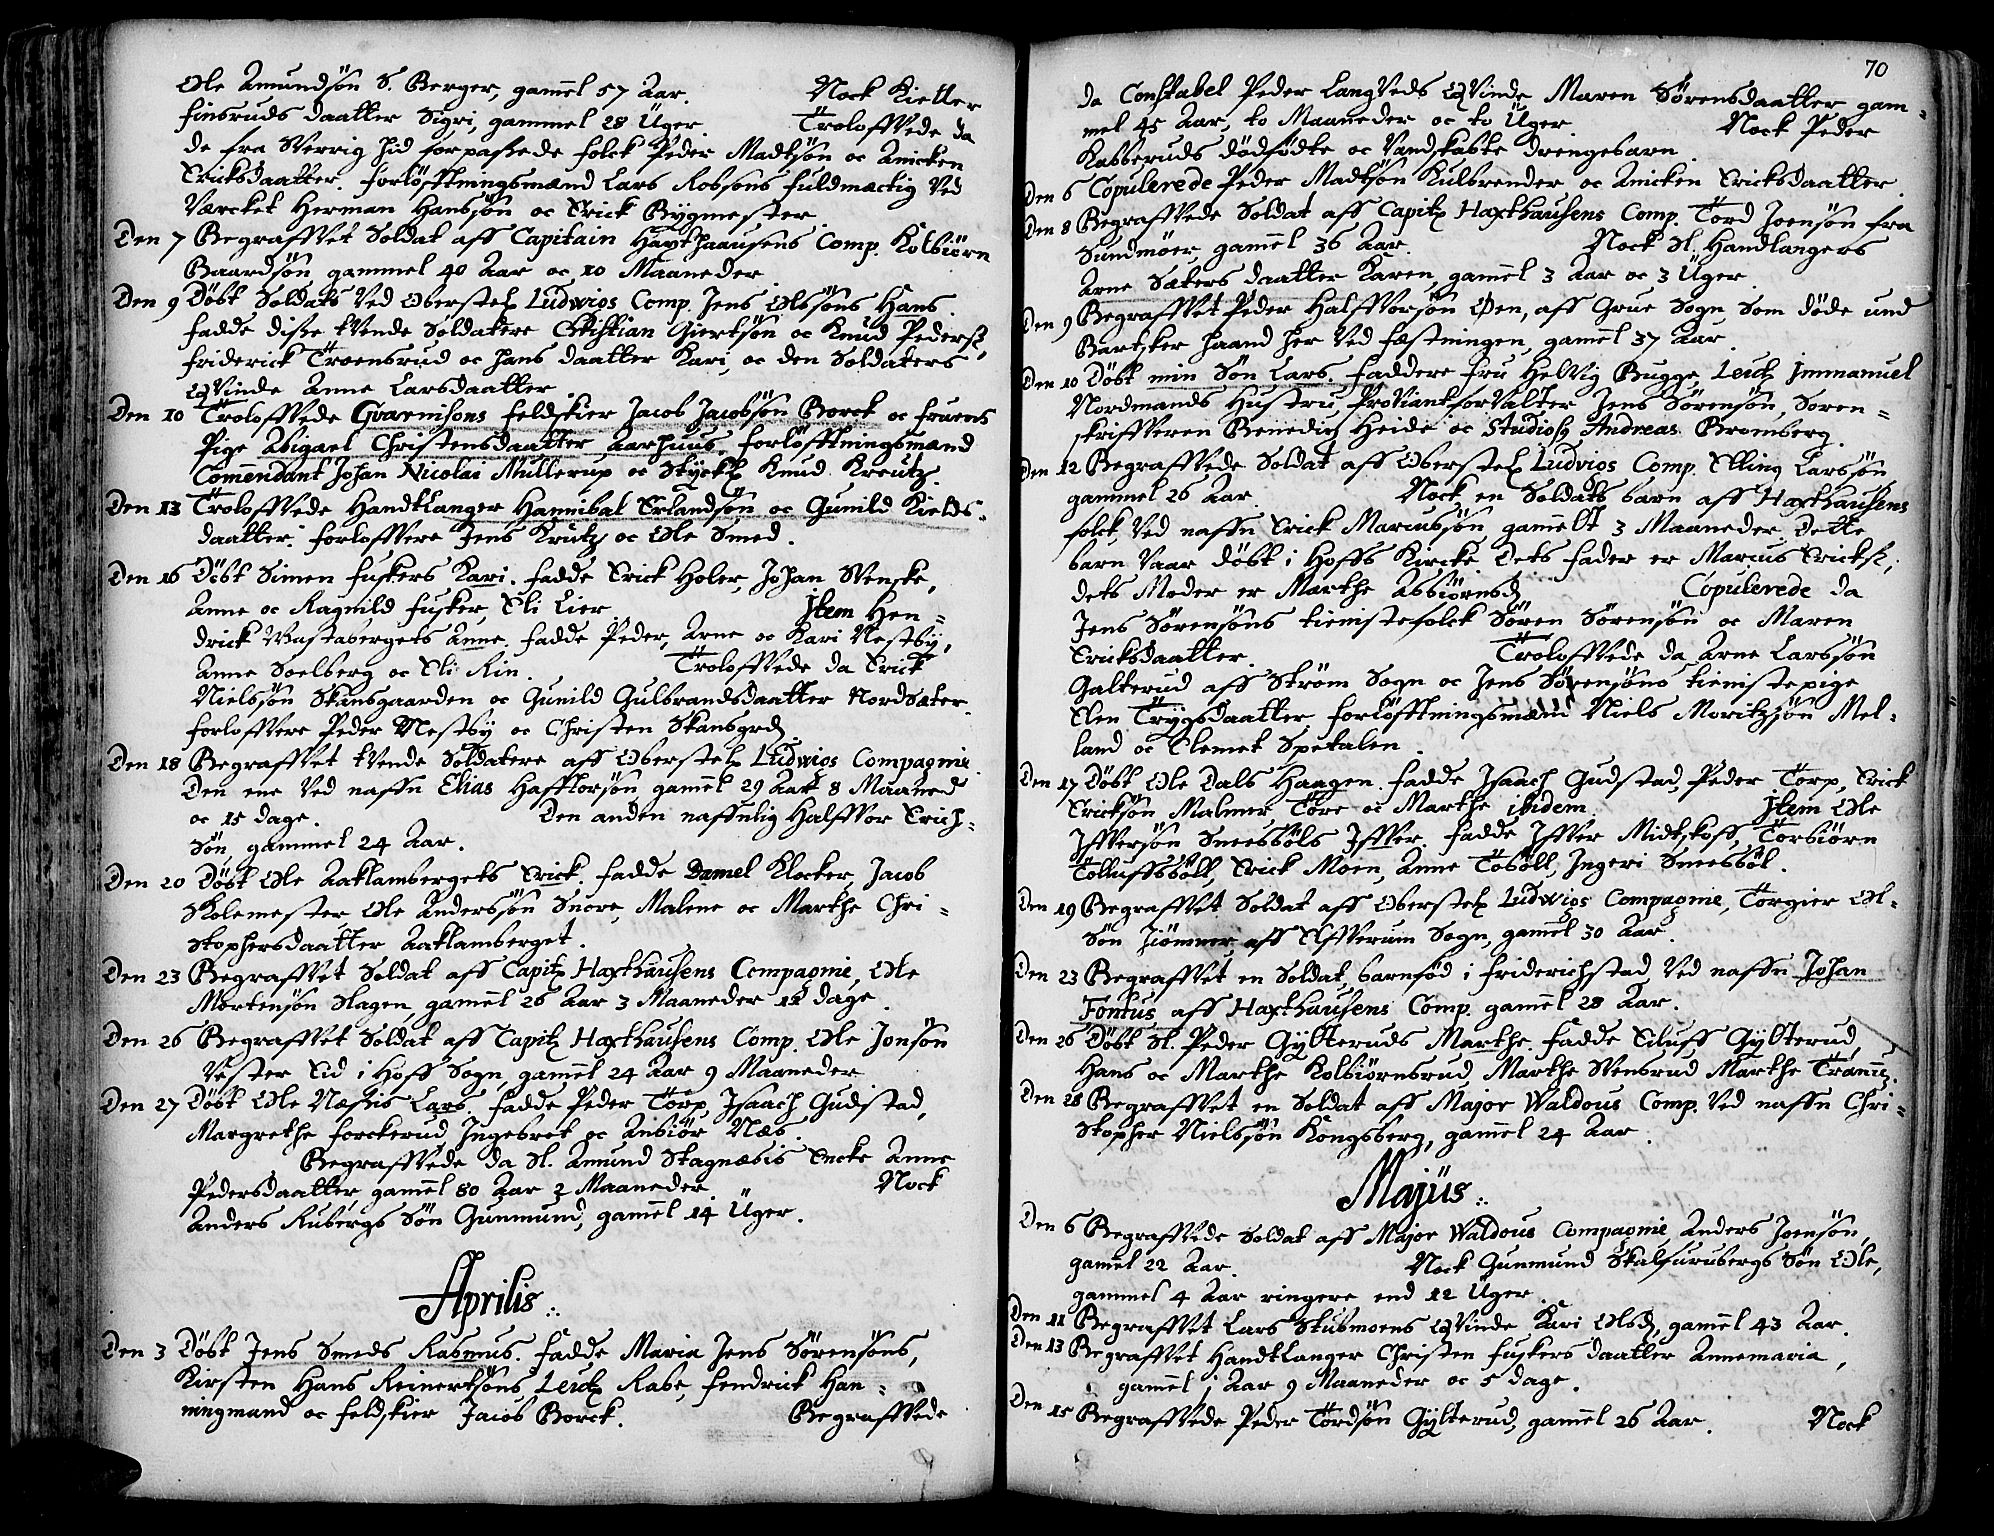 Ole Amundsøn S. Berger, gam̄el 57 Aar. Nock Kietter
finsruds daatter Sigri, gammel 28 Uger. Troloffvede da
de fra Sverrig hid forpassede folck Peder Madtsøn oc Anicken
Ericksdaatter. forløfftningsmænd Lars Robsons fuldmæctig ved
Værcket Herman Hanssøn oc Erick Bygmester.
Den 7 Begraffvet Soldat aff Capitain Haxthaausens Comp. Kolbiørn
Baardsøn gammel 40 Aar oc 10 Maaneder.
Den 9 Døbt Soldats ved Oberstel Ludwigs Comp. Jens Olssøns Hans.
fadde disse tvende Soldatere Christian Giertsøn oc Knud Peders,
friderick Troensrud oc hans daatter Kari, oc den Soldaters
Qvinde Anne Larsdaatter.
Den 10 Troloffvede Gvarnisons feldskier Jacob Jacobsøn Borck oc fruens
Pige Abigael Christensdaatter Aarhuus, forløfftningsmænd
Com̄endant Johan Nicolai Mullerup oc Styckl Knud Kreutz.
Den 13 Troloffvede Handtlanger Hannibal Erlandsøn oc Gunild Kields-
daatter. forloffvere Jens Krutz oc Ole Smed.
Den 16 Døbt Simen fuskers Kari. fadde Erick Holer, Johan Svenske,
Anne oc Ragnild fusker, Eli Lier. Jtem Hen-
drick Wastabergets Anne. fadde Peder, Arne oc Kari Nestby,
Anne Soelberg oc Eli Rin. Troloffvede da Erick
Nielssøn Skansgaarden oc Gunild Gulbrandsdaatter Nordsæter.
forloffvere Peder Nestby oc Christen Skansgrd.
Den 18 Begraffvet tvende Soldatere aff Oberstel Ludwigs Compagnie.
Den ene ved naffn Elias Haffthorsøn gam̄el 29 Aar 8 Maaned
oc 15 dage. Den anden naffnlig Halffvor Erich-
søn gammel 24 Aar.
Den 20 Døbt Ole Aaklambergets Erick, fadde Daniel Klocker, Jacob
Skolemester, Ole Anderssøn Snore, Malene oc Marthe Chri-
stophersdaatter Aaklamberget.
Den 23 Begraffvet Soldat aff Capit Haxthausens Compagnie, Ole
Mortensøn Slagen, gam̄el 26 Aar 3 Maaneder 12 dage.
Den 26 Begraffvet Soldat aff Capit Haxthausens Comp. Ole Jonsøn
Vester Eid i Hoff Sogn, gam̄el 24 Aar 9 Maaneder.
Den 27 Døbt Ole Næshis Lars. fadde Peder Torp, Jsaach Gudstad,
Margrethe forckerud, Ingebret oc Anbiør Næs.
Begraffvede da Sl. Amund Skagnæbis Encke Anne
Pedersdaatter gam̄el 80 Aar 2 Maaneder. Nock
Anders Rubergs Søn Gunmund, gam̄el 14 Uger.
Aprilis.
Den 3 Døbt Jens Smeds Rasmus. fadde Maria Jens Sørensøns,
Kirsten Hans Reinertsøns, Leut Rabe, fendrick Han-
ningmand oc feldskier Jacob Borck. Begraffvede
70
da Constabel Peder Langveds Qvinde Maren Sørensdaatter gam-
mel 45 Aar, to Maaneder oc to Uger. Nock Peder
Kabberuds dødfødte oc vandskabte drengebarn.
Den 6 Copulerede Peder Madtsøn Kulbrender oc Anicken Ericksdaatter.
Den 8 Begraffvede Soldat aff Capit Haxthausens Comp. Tord Joensøn fra
Sundmøer, gam̄el 36 Aar. Nock Sl. Handlangers
Arne Sæters daatter Karen, gam̄el 3 Aar oc 3 Uger.
Den 9 Begraffvet Peder Halffvorsøn Øen, aff Grue Sogn som døde und
Bartsker haand her ved fæstningen, gam̄el 37 Aar.
Den 10 Døbt min Søn Lars. faddere fru Helvig Bugge, Leut Jmmanuel
Nordmands Hustru, Proviantforvalter Jens Sørensøn, Soren-
skriffveren Benedix Heide oc Studios Andreas Bromberg.
Den 12 Begraffvede Soldat aff Oberstel Ludvigs Comp. Elling Larssøn
gammel 26 Aar. Nock en Soldats barn aff Haxthausens
folck, ved naffn Erick Marcussøn, gam̄elt 3 Maaneder. Dette
barn vaar døbt i Hoffs Kircke. Dets fader er Marcus Ericks,
dets Moder er Marthe Asbiørnsd. Copulerede da
Jens Sørensøns tienistefolck Søren Sørensøn oc Maren
Ericksdaatter. Troloffvede da Arne Larssøn
Galterud aff Strøm Sogn oc Jens Sørensøns tienistepige
Elen Trygsdaatter forløfftningsmænd Niels Moritzsøn Mel-
land oc Clemet Spetalen.
Den 17 Døbt Ole Dals Haagen. fadde Jsaach Gudstad, Peder Torp, Erick
Ericksøn Malmer, Tore oc Marthe ibidem. Jtem Ole
Jffversøn Sneesbøls Jffver. fadde Jffver Midtskoff, Torbiørn
Tolluffsbøll, Erick Moen, Anne Tøbøll, Jngeri Sneesbøl.
Den 19 Begraffvet Soldat aff Oberstel Ludwigs Compagnie, Torgier Ol-
søn Hiømner aff Elffverum Sogn, gam̄el 30 Aar.
Den 23 Begraffvet en Soldat, barnfød i friderichstad ved naffn Johan
Fontus aff Haxthausens Comp. gam̄el 28 Aar.
Den 26 Døbt Sl. Peder Gylteruds Marthe. fadde Eiluff Gylterud,
Hans oc Marthe Kolbiørnsrud, Marthe Svensrud, Marthe Tran̄u.
Den 28 Begraffvet en Soldat aff Major Waldous Comp. ved naffn Chri-
stopher Nielssøn Kongsberg, gam̄el 24 Aar.
Majus.
Den 6 Begraffvede Soldat aff Major Waldous Compagnie, Anders Joensøn,
gam̄el 22 Aar. Nock Gunmund Skalfurubergs Søn Ole,
gammel 4 Aar ringere end 12 Uger.
Den 11 Begraffvet Lars Stubmoens Qvinde Kari Olsd, gam̄el 43 Aar.
Den 13 Begraffvet Handtlanger Christen fuskers daatter Annemaria,
gam̄el 1 Aar 9 Maaneder oc 5 dage.
Den 15 Begraffvede Peder Tordsøn Gylterud, gam̄el 26 Aar. Nock